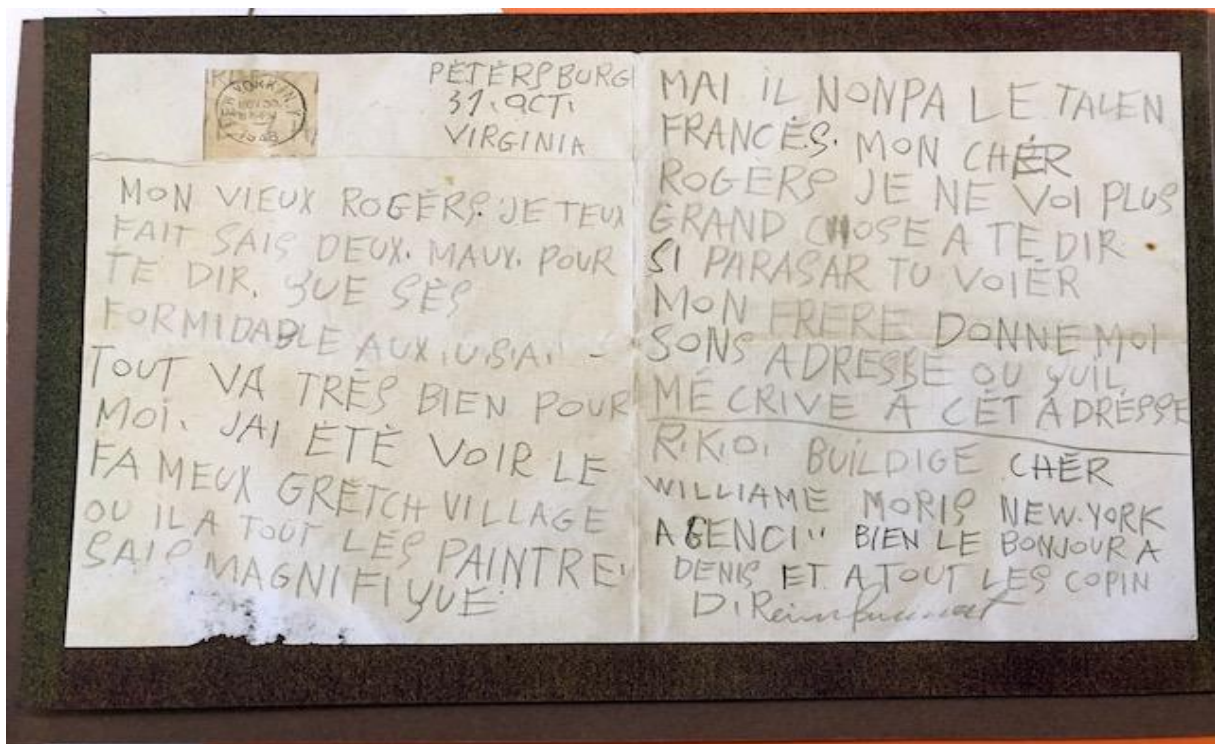 PÉTÉRSBURG
31. OCT.
VIRGINIA
MON VIEUX ROGÉRS. JE TEUX
FAIT SAIS DEUX. MAUX. POUR
TE DIR. QUE SÉS
FORMIDABLE AUX. U.S.A. -
TOUT VA TRÈS BIEN POUR
MOI. JAI ÉTÉ VOIR LE
FAMEUX GRÉTCH VILLAGE
OU IL A TOUT LES PAINTRE.
SAIS MAGNIFIQUE
MAI IL NONPA LE TALEN
FRANCÉS. MON CHÉR
ROGÉRS JE NE VOI PLUS
GRAND CHOSE A TE DIR
SI PARASAR TU VOIÉR
MON FRERE DONNE MOI
SONS ADRESSE OU QUIL
MÉ CRIVE À CÉT ADRÉSSE
R.K.O. BUILDIGE CHÉR
WILLIAME MORIS NEW-YORK
AGENCI" BIEN LE BONJOUR A
DENIS ET A TOUT LES COPIN